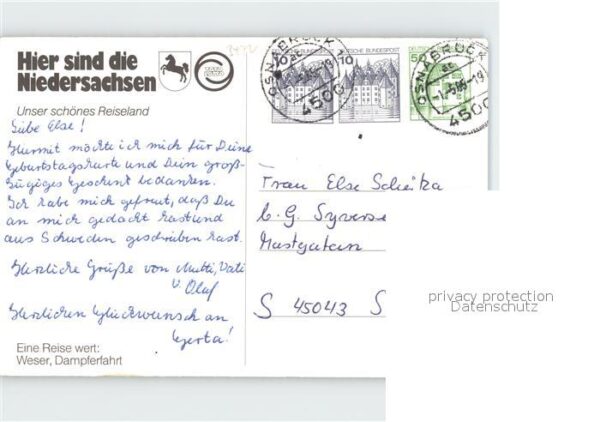 Hier sind die
Niedersachsen
Unser schönes Reiseland
Liebe Else!
Hiermit möchte ich mich für Deine
Geburtstagskarte und Dein groß-
zügiges Geschenk bedanken.
Ich habe mich gefreut, daß Du
an mich gedacht hast und
aus Schweden geschrieben hast.
Herzliche Grüße von Mutti, Vati
u. Olaf
Herzlichen Glückwunsch an
Gerta!
Eine Reise wert:
Weser, Dampferfahrt
OSNABRÜCK 1
4500
10
DEUTSCHE BUNDESPOST
10
50
OSNABRÜCK
4500
Frau Else
b. G.
Mastgatan
S 45043 S
privacy protection
Datenschutz